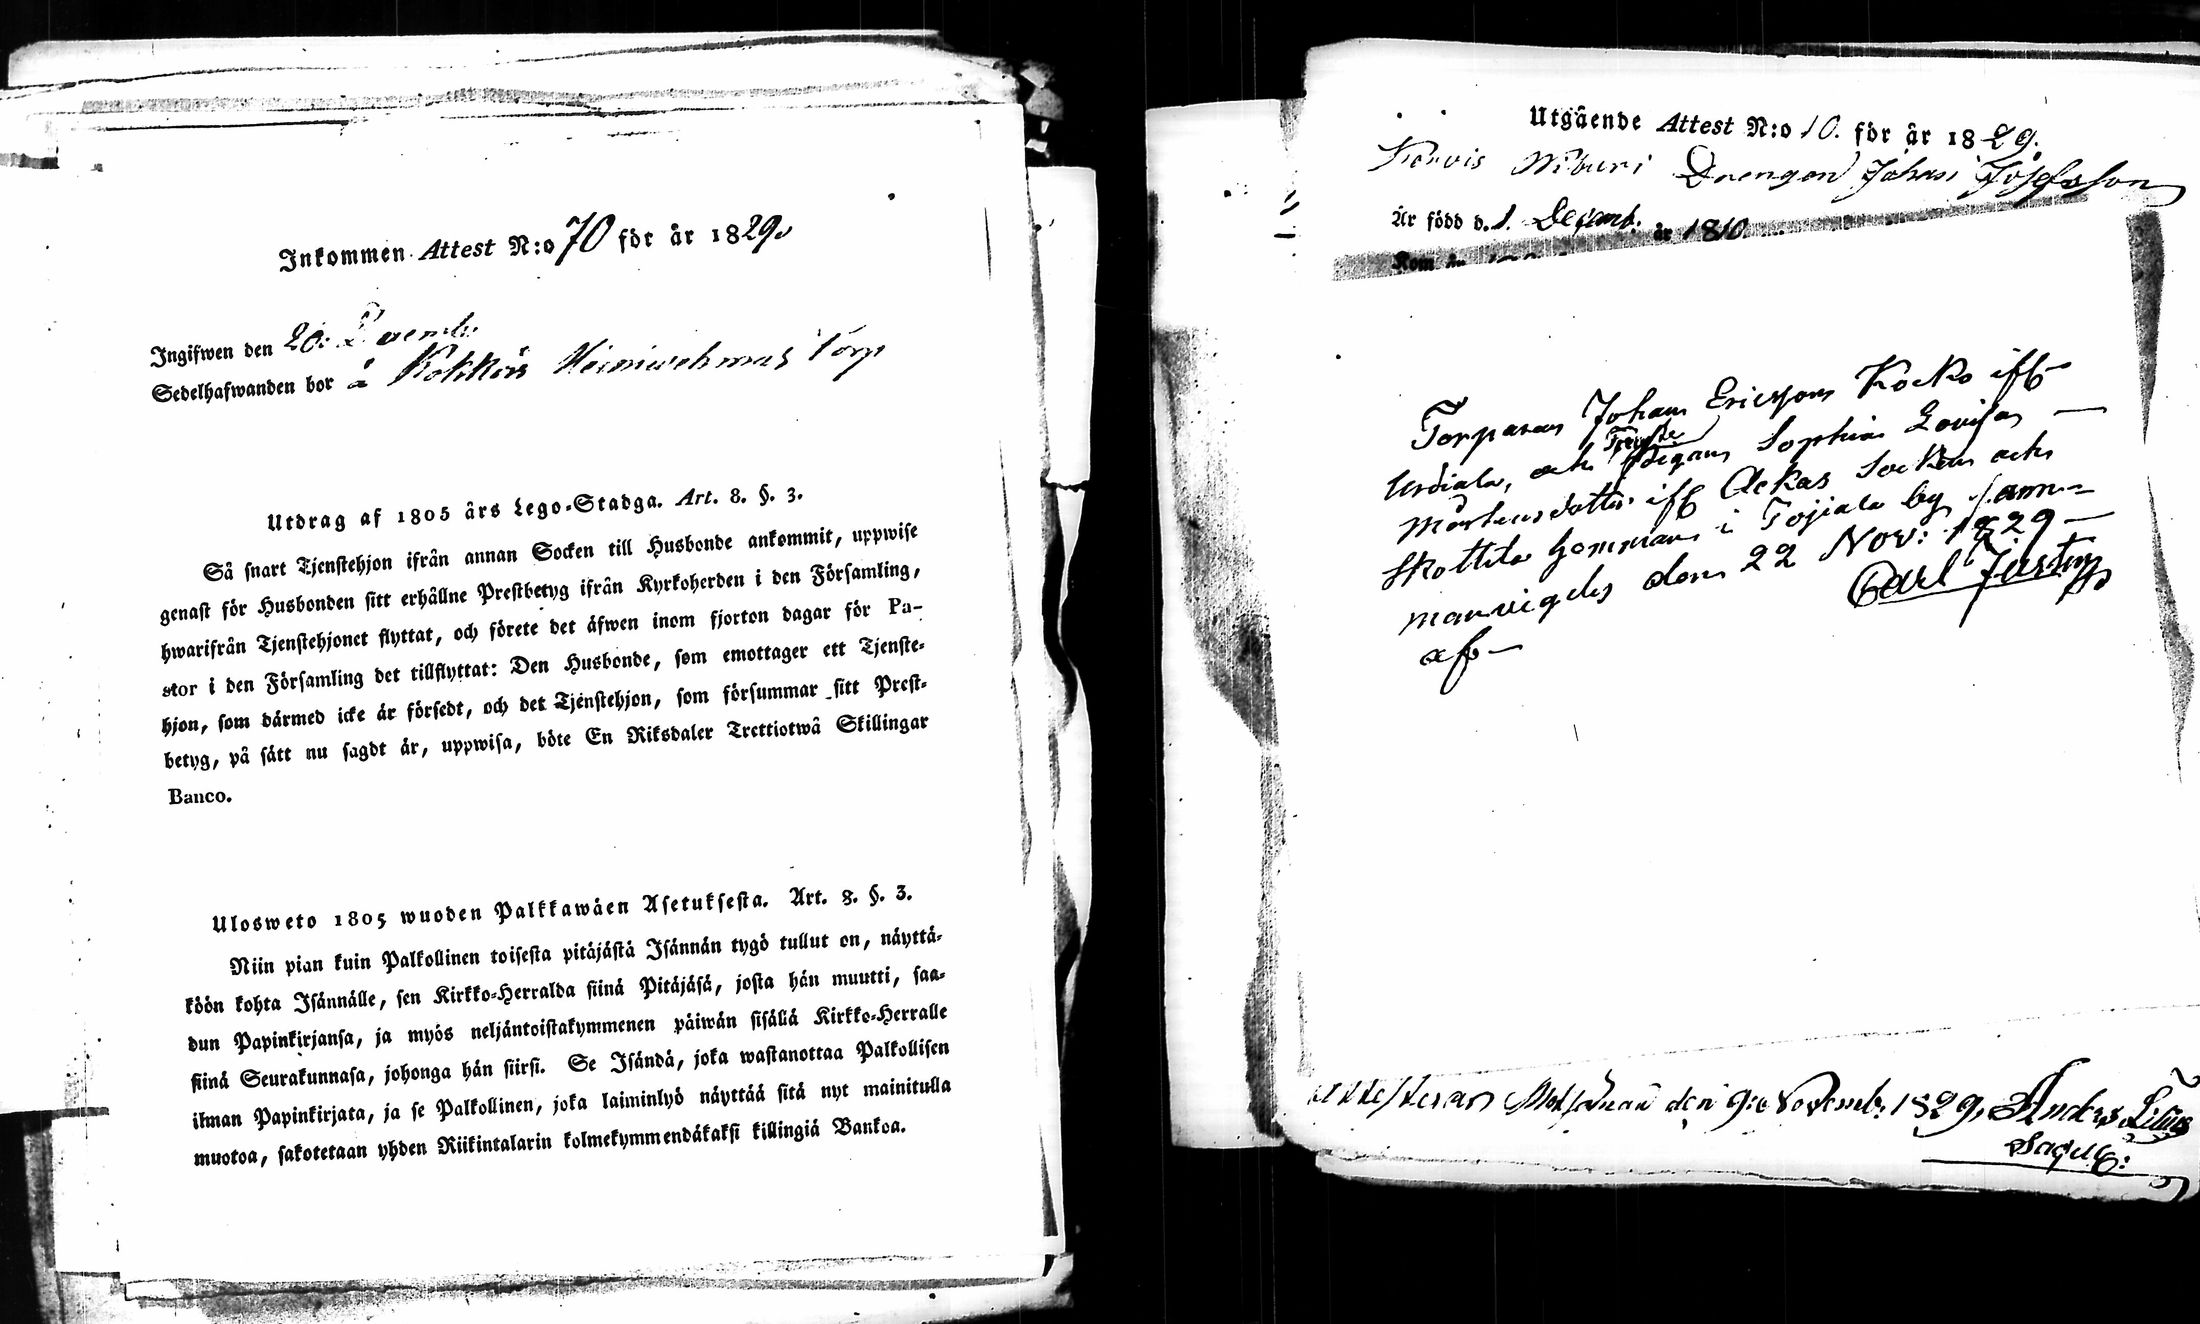 Inkommen Attest N:o 70 för år 1829.
Ingifwen den 20: Decemb:
Sedelhafwanden bor å Kokkois Heiniwehmas Torp
Utdrag af 1805 års Lego-Stadga. Art. 8. §. 3.
Så snart Tjenstehjon ifrån annan Socken till Husbonde ankommit, uppwise
genast för Husbonden sitt erhållne Prestbetyg ifrån Kyrkoherden i den Församling,
hwarifrån Tjenstehjonet flyttat, och förete det äfwen inom fjorton dagar för Pa-
stor i den Församling det tillflyttat: Den Husbonde, som emottager ett Tjenste-
hjon, som därmed icke är försedt, och det Tjenstehjon, som försummar sitt Prest-
betyg, på sätt nu sagdt är, uppwisa, böte En Riksdaler Trettiotwå Skillingar
Banco.
Ulosweto 1805 wuoden Palkkawäen Asetuksesta. Art. 8. §. 3.
Niin pian kuin Palkollinen toisesta pitäjästä Isännän tygö tullut on, näyttä-
köön kohta Isännälle, sen Kirkko-Herralda siinä Pitäjäsä, josta hän muutti, saa-
dun Papinkirjansa, ja myös neljäntoistakymmenen päiwän sisällä Kirkko-Herralle
siinä Seurakunnasa, johonga hän siirsi. Se Isändä, joka wastanottaa Palkollisen
ilman Papinkirjata, ja se Palkollinen, joka laiminlyö näyttää sitä nyt mainitulla
muotoa, sakotetaan yhden Riikintalarin kolmekymmendäkaksi killingiä Bankoa.
Utgående Attest N:o 10. för år 1829.
Korvis Niburi Drengen Johan Josefsson
Är född d. 1. Decemb. år 1810
Kom år
Torparen Johan Ericsson Kocko ifr
Urdiala, och Tienste Pigan Sophia Lovisa
Mårtensdotter ifr Ackas Socken och
Skottila hemman i Tojiala by, sam-
manvigdes den 22 Nov: 1829
Carl
den 9:e Novemb: 1829, Anders